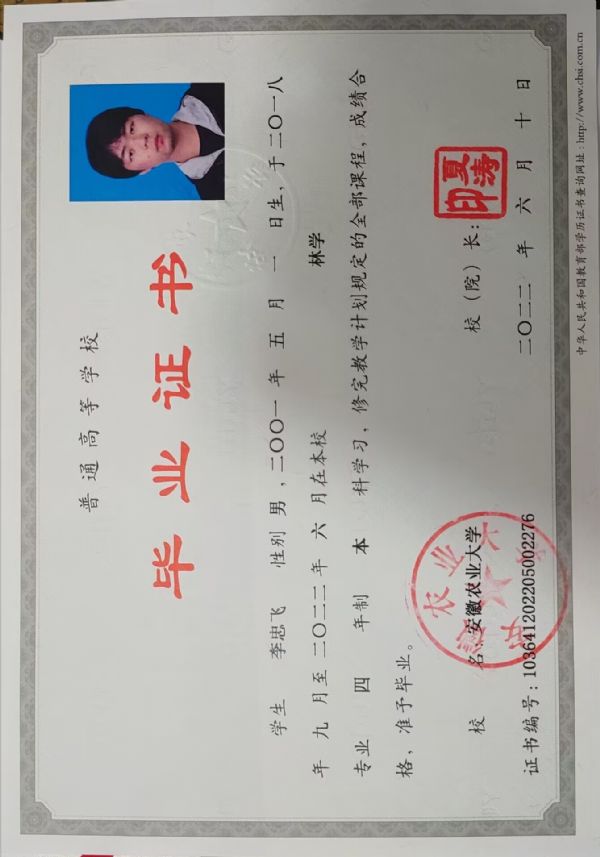 普通高等学校
毕业证书
学生 李忠飞 性别 男，二〇〇一年 五 月 一 日生，于二〇一八
年 九 月至 二〇二二年 六 月在本校 林学
专业 四 年制 本 科学习，修完教学计划规定的全部课程，成绩合
格，准予毕业。
校 名：安徽农业大学 校（院）长：
夏涛印
证书编号：103641202205002276 二〇二二 年 六 月 十 日
中华人民共和国教育部学历证书查询网址：http://www.chsi.com.cn